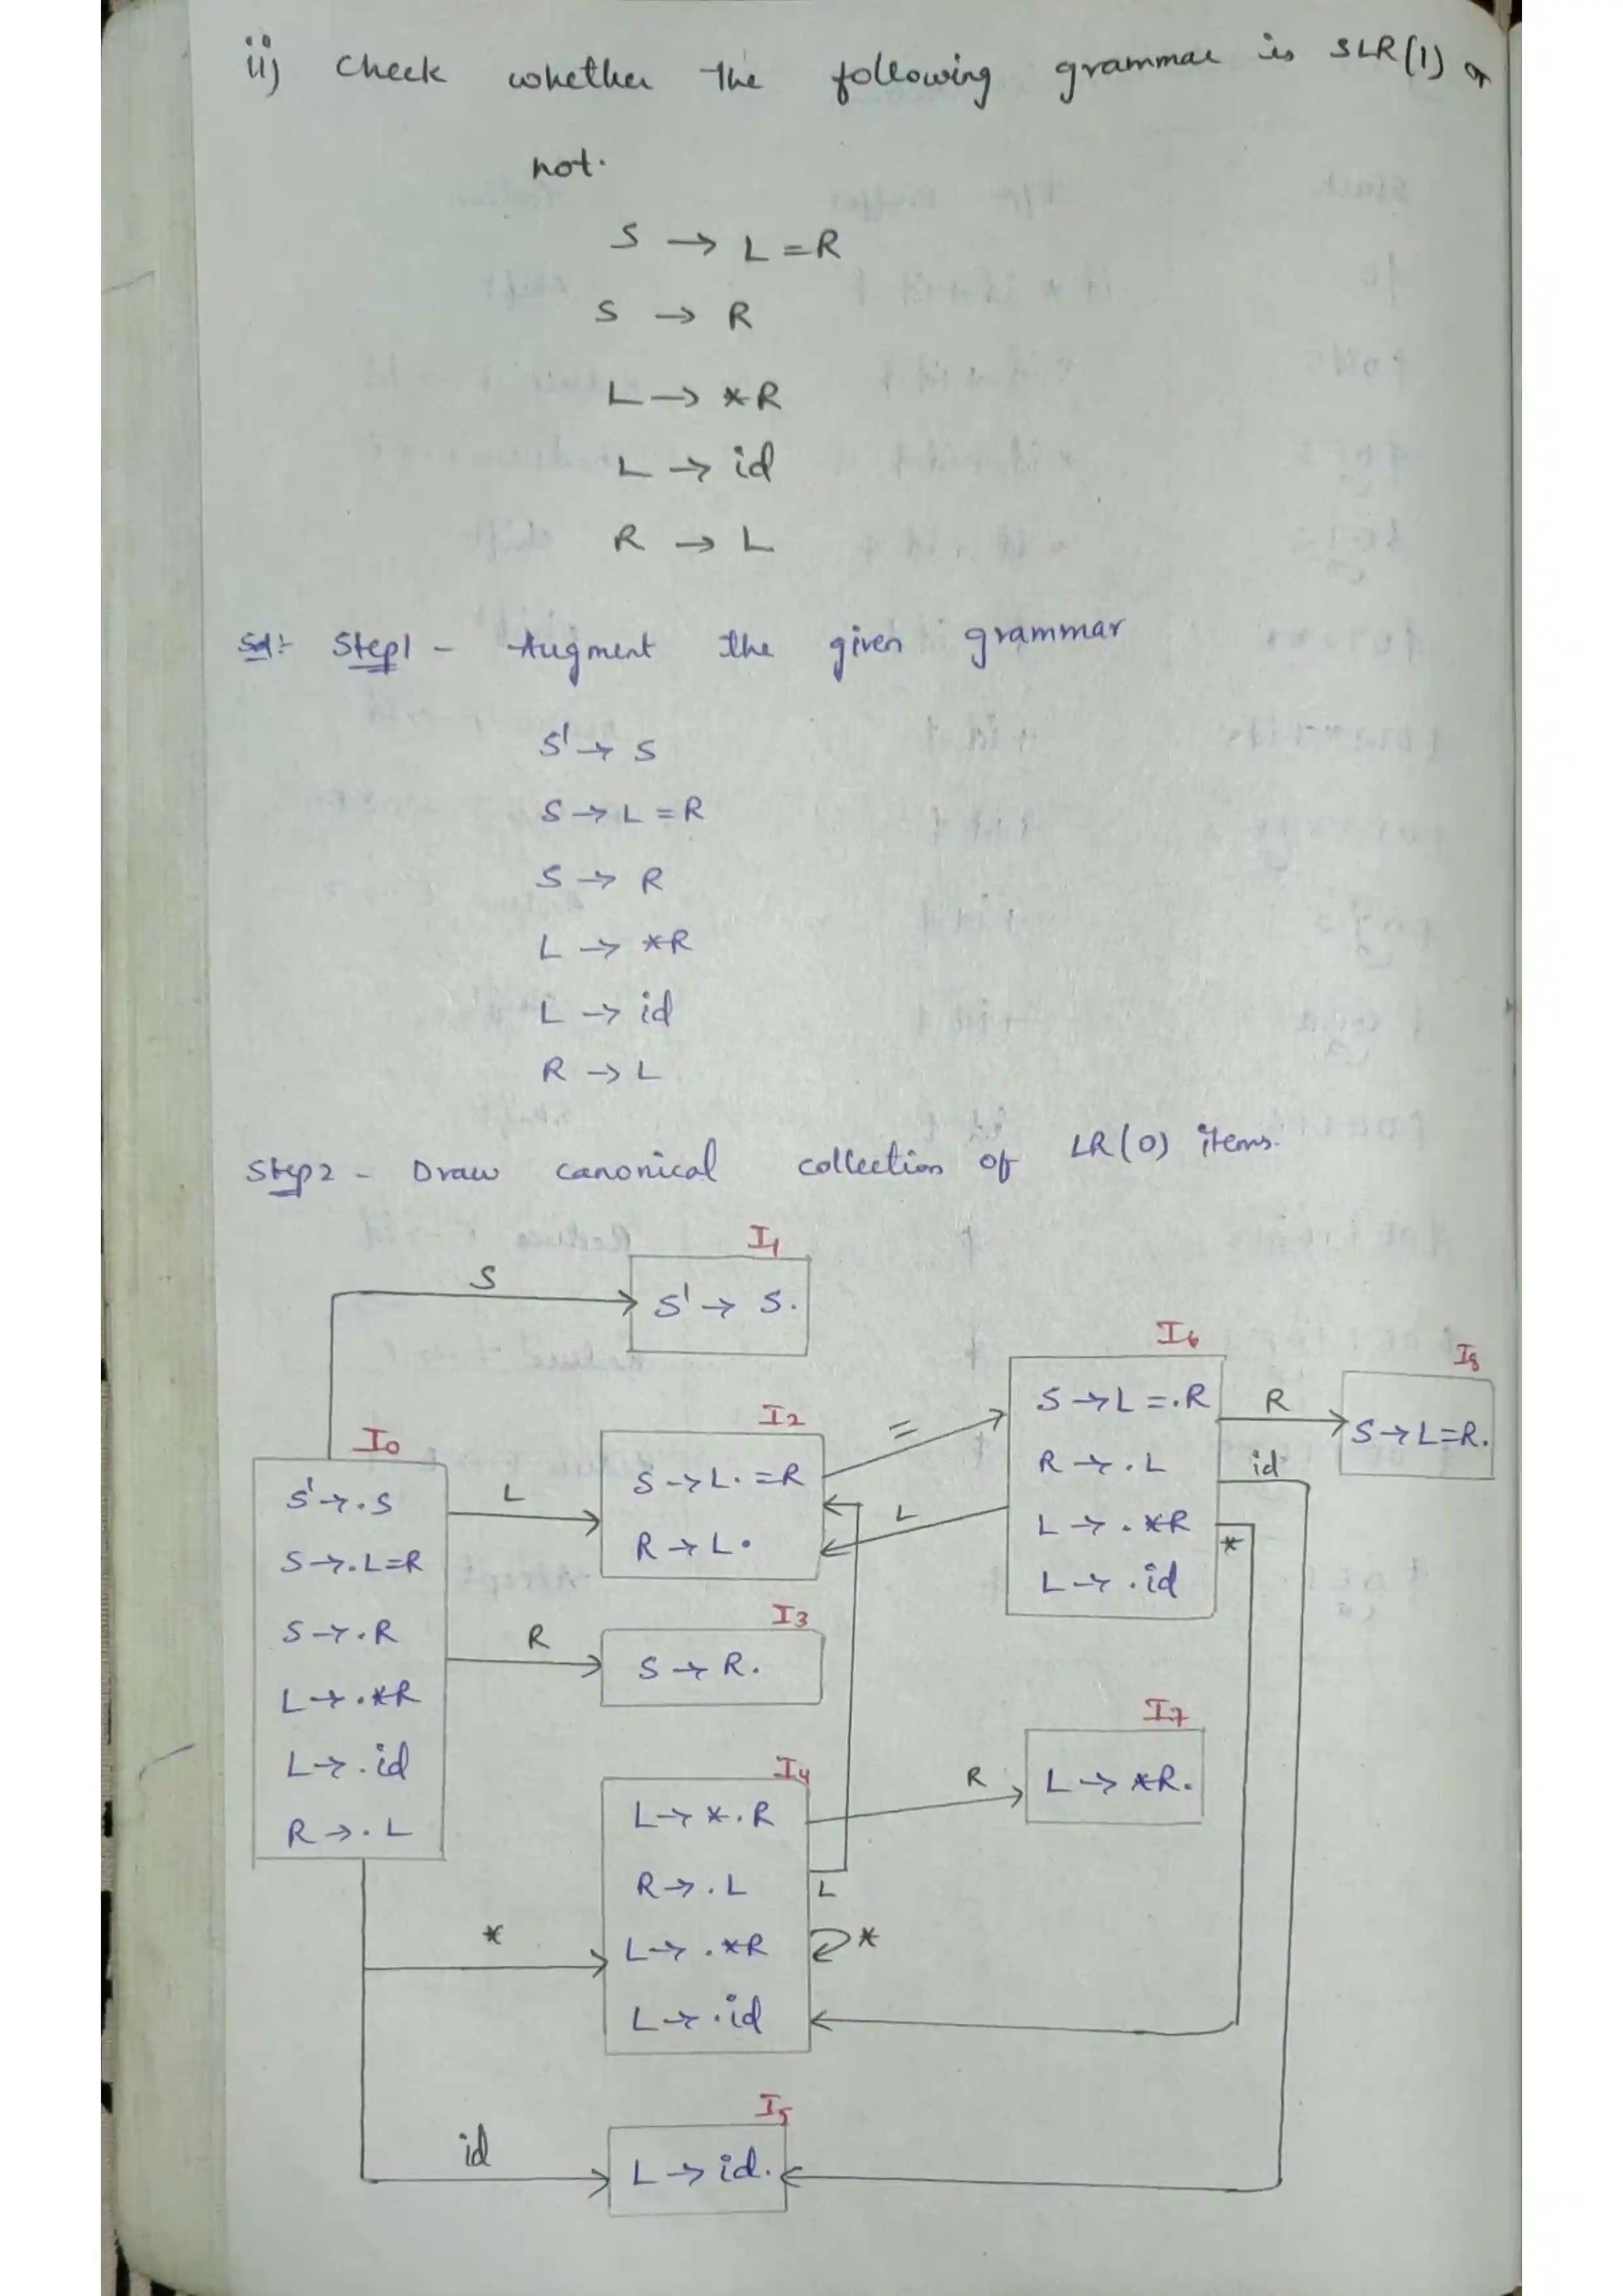 ii) Check whether the following grammar is SLR(1) or
not.
S → L = R
S → R
L → *R
L → id
R → L
Sol:- Step1 - Augment the given grammar
S' → S
S → L = R
S → R
L → *R
L → id
R → L
Step2 - Draw canonical collection of LR(0) items.
I1
S
S' → S.
I6
I8
S → L = .R
R
S → L=R.
R → .L
id
L → .*R
*
L → .id
I2
=
S → L. = R
L
R → L.
I0
S' → .S
L
S → .L=R
S → .R
R
L → .*R
L → .id
R → .L
I3
S → R.
I7
R
L → *R.
I4
L → *.R
R → .L
L
L → .*R
*
L → .id
*
I5
id
L → id.